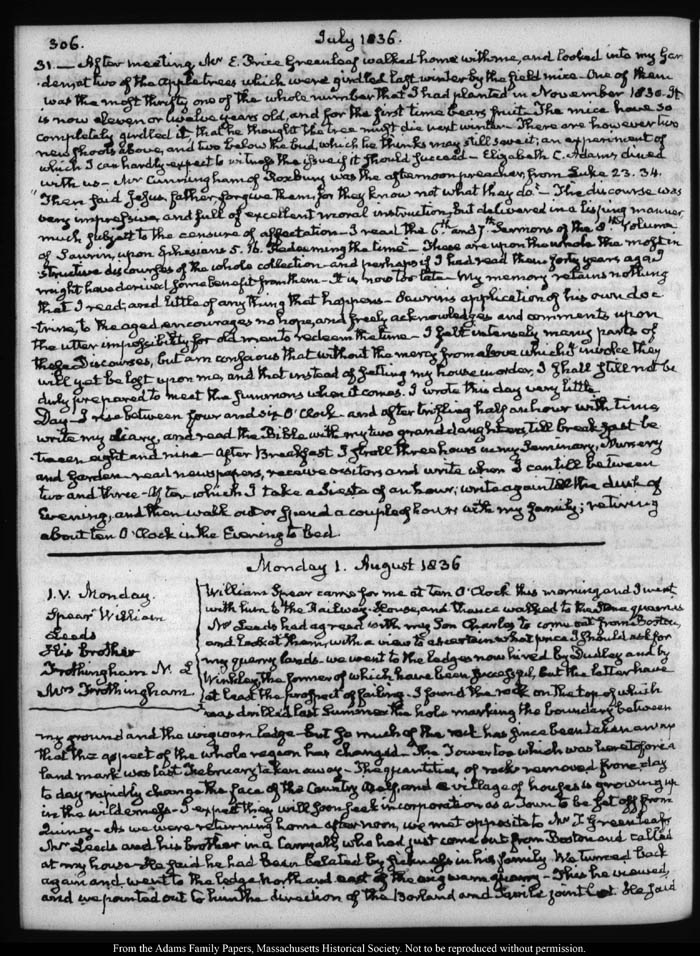 306.
July 1836.
31. — After meeting, Mr E. Price Greenleaf walked home with me, and looked into my Gar
den at two of the apple trees which were girdled last winter by the field mice — One of them
was the most thrifty one of the whole number that I had planted in November 1830. It
is now eleven or twelve years old, and for the first time bears fruit — The mice have so
completely girdled it, that he thought the tree must die next winter — There are however two
new shoots above, and two below the bud, which he thinks may still save it; an experiment of
which I can hardly expect to witness the issue if it should succeed — Elizabeth C. Adams, dined
with us — Mr Cunningham of Roxbury was the afternoon preacher, from Luke 23. 34.
"Then said Jesus, father, forgive them, for they know not what they do." — The discourse was
very impressive, and full of excellent moral instruction, but delivered in a lisping manner,
much subject to the censure of affectation — I read the 6th and 7th Sermons of the 8th Volume
of Saurin, upon Ephesians 5. 16. Redeeming the time — These are upon the whole the most in
structive discourses of the whole collection — and perhaps if I had read them forty years ago, I
might have derived some benefit from them — It is now too late — My memory retains nothing
that I read, and little of any thing that happens — Saurin's application of his own doc
trine, to the aged encourages no hope, and freely acknowledges and comments upon
the utter impossibility for old men to redeem the time — I felt intensely many parts of
these Discourses, but am conscious that without the mercy from above which I invoke they
will yet be lost upon me, and that instead of setting my house in order, I shall still not be
duly prepared to meet the summons when it comes. I wrote this day very little.
Day — I rise between four and six O'Clock and after trifling half an hour with time
write my diary, and read the Bible with my two grand daughters till breakfast be
tween eight and nine — After Breakfast I stroll three hours in my Seminary, Nursery
and Garden — read newspapers, receive visitors and write when I can till between
two and three — After which I take a Siesta of an hour; write again till the dusk of
Evening, and then walk out or spend a couple of hours with my family; retiring
about ten O'Clock in the Evening to bed.
Monday 1. August 1836
1. V. Monday.
Spear William
Leeds
His brother
Frothingham N. L
Mrs Frothingham
William Spear came for me at ten O'Clock this morning and I went
with him to the Railway House, and thence walked to the Stone quarries
Mr Leeds had agreed with my Son Charles to come out from Boston,
and look at them, with a view to ascertain what price I should ask for
my quarry lands — we went to the ledges now hired by Dudley and by
Winkley, the former of which have been successful, but the latter have
at least the prospect of failing. I found the rock on the top of which
was drilled last Summer the hole marking the boundary between
my ground and the wigwam ledge — but so much of the rock has since been taken away
that the aspect of the whole region has changed — The Tower too which was heretofore a
land mark was last February taken away — The quantities of rock removed from day
to day rapidly change the face of the Country itself, and a village of houses is growing up
in the wilderness — I expect they will soon seek incorporation as a Town to be set off from
Quincy — As we were returning home after noon, we met opposite to Mr T Greenleaf's
Mr Leeds and his brother in a Carryall, who had just come out from Boston and called
at my house — He said he had been belated by sickness in his family. We turned back
again and went to the ledge North and east of the wigwam quarry — This he viewed,
and we pointed out to him the direction of the Borland and Savile joint lot. He said
From the Adams Family Papers, Massachusetts Historical Society. Not to be reproduced without permission.